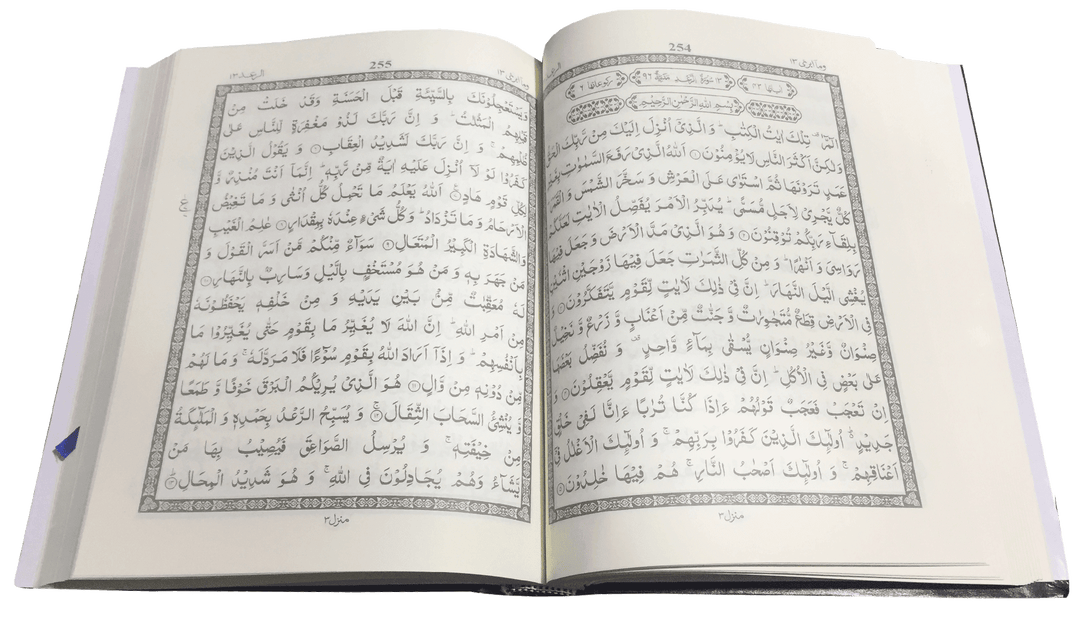 وما ابرئ ١٣
254
اٰیاتها ٤٣ ١٣ سُوْرَةُ الرَّعْدِ مَدَنِيَّةٌ ٩٦ رکوعاتها ٦
بِسْمِ اللهِ الرَّحْمٰنِ الرَّحِيْمِ
الٓمّٓرٰ ۫ تِلْكَ اٰيٰتُ الْكِتٰبِ ؕ وَ الَّذِيْۤ اُنْزِلَ اِلَيْكَ مِنْ رَّبِّكَ الْحَقُّ
وَلٰكِنَّ اَكْثَرَ النَّاسِ لَا يُؤْمِنُوْنَ ۝١ اَللهُ الَّذِيْ رَفَعَ السَّمٰوٰتِ بِغَيْرِ
عَمَدٍ تَرَوْنَهَا ثُمَّ اسْتَوٰى عَلَى الْعَرْشِ وَ سَخَّرَ الشَّمْسَ وَ الْقَمَرَ ؕ
كُلٌّ يَّجْرِيْ لِاَجَلٍ مُّسَمًّى ؕ يُدَبِّرُ الْاَمْرَ يُفَصِّلُ الْاٰيٰتِ لَعَلَّكُمْ
بِلِقَآءِ رَبِّكُمْ تُوْقِنُوْنَ ۝٢ وَ هُوَ الَّذِيْ مَدَّ الْاَرْضَ وَ جَعَلَ فِيْهَا
رَوَاسِيَ وَ اَنْهٰرًا ؕ وَ مِنْ كُلِّ الثَّمَرٰتِ جَعَلَ فِيْهَا زَوْجَيْنِ اثْنَيْنِ
يُغْشِى الَّيْلَ النَّهَارَ ؕ اِنَّ فِيْ ذٰلِكَ لَاٰيٰتٍ لِّقَوْمٍ يَّتَفَكَّرُوْنَ ۝٣ وَ
فِى الْاَرْضِ قِطَعٌ مُّتَجٰوِرٰتٌ وَّ جَنّٰتٌ مِّنْ اَعْنَابٍ وَّ زَرْعٌ وَّ نَخِيْلٌ
صِنْوَانٌ وَّ غَيْرُ صِنْوَانٍ يُّسْقٰى بِمَآءٍ وَّاحِدٍ ۫ وَ نُفَضِّلُ بَعْضَهَا
عَلٰى بَعْضٍ فِى الْاُكُلِ ؕ اِنَّ فِيْ ذٰلِكَ لَاٰيٰتٍ لِّقَوْمٍ يَّعْقِلُوْنَ ۝٤ وَ
اِنْ تَعْجَبْ فَعَجَبٌ قَوْلُهُمْ ءَاِذَا كُنَّا تُرٰبًا ءَاِنَّا لَفِيْ خَلْقٍ
جَدِيْدٍ ؕ اُولٰٓئِكَ الَّذِيْنَ كَفَرُوْا بِرَبِّهِمْ ۚ وَ اُولٰٓئِكَ الْاَغْلٰلُ فِيْۤ
اَعْنَاقِهِمْ ۚ وَ اُولٰٓئِكَ اَصْحٰبُ النَّارِ ۚ هُمْ فِيْهَا خٰلِدُوْنَ ۝٥
منزل ٣
وما ابرئ ١٣
255
الرعد ١٣
وَيَسْتَعْجِلُوْنَكَ بِالسَّيِّئَةِ قَبْلَ الْحَسَنَةِ وَقَدْ خَلَتْ مِنْ
قَبْلِهِمُ الْمَثُلٰتُ ؕ وَ اِنَّ رَبَّكَ لَذُوْ مَغْفِرَةٍ لِّلنَّاسِ عَلٰى
ظُلْمِهِمْ ۚ وَ اِنَّ رَبَّكَ لَشَدِيْدُ الْعِقَابِ ۝٦ وَ يَقُوْلُ الَّذِيْنَ
كَفَرُوْا لَوْ لَاۤ اُنْزِلَ عَلَيْهِ اٰيَةٌ مِّنْ رَّبِّهٖ ؕ اِنَّمَاۤ اَنْتَ مُنْذِرٌ وَّ
لِكُلِّ قَوْمٍ هَادٍ ۝٧ اَللهُ يَعْلَمُ مَا تَحْمِلُ كُلُّ اُنْثٰى وَ مَا تَغِيْضُ
الْاَرْحَامُ وَ مَا تَزْدَادُ ؕ وَ كُلُّ شَيْءٍ عِنْدَهٗ بِمِقْدَارٍ ۝٨ عٰلِمُ الْغَيْبِ
وَالشَّهَادَةِ الْكَبِيْرُ الْمُتَعَالِ ۝٩ سَوَآءٌ مِّنْكُمْ مَّنْ اَسَرَّ الْقَوْلَ وَ
مَنْ جَهَرَ بِهٖ وَ مَنْ هُوَ مُسْتَخْفٍۭ بِالَّيْلِ وَسَارِبٌۢ بِالنَّهَارِ ۝١٠
لَهٗ مُعَقِّبٰتٌ مِّنْۢ بَيْنِ يَدَيْهِ وَ مِنْ خَلْفِهٖ يَحْفَظُوْنَهٗ
مِنْ اَمْرِ اللهِ ؕ اِنَّ اللهَ لَا يُغَيِّرُ مَا بِقَوْمٍ حَتّٰى يُغَيِّرُوْا مَا
بِاَنْفُسِهِمْ ؕ وَ اِذَاۤ اَرَادَ اللهُ بِقَوْمٍ سُوْٓءًا فَلَا مَرَدَّ لَهٗ ۚ وَ مَا لَهُمْ
مِّنْ دُوْنِهٖ مِنْ وَّالٍ ۝١١ هُوَ الَّذِيْ يُرِيْكُمُ الْبَرْقَ خَوْفًا وَّ طَمَعًا
وَّ يُنْشِئُ السَّحَابَ الثِّقَالَ ۝١٢ وَ يُسَبِّحُ الرَّعْدُ بِحَمْدِهٖ وَ الْمَلٰٓئِكَةُ
مِنْ خِيْفَتِهٖ ۚ وَ يُرْسِلُ الصَّوَاعِقَ فَيُصِيْبُ بِهَا مَنْ
يَّشَآءُ وَهُمْ يُجَادِلُوْنَ فِى اللهِ ۚ وَ هُوَ شَدِيْدُ الْمِحَالِ ۝١٣
منزل ٣